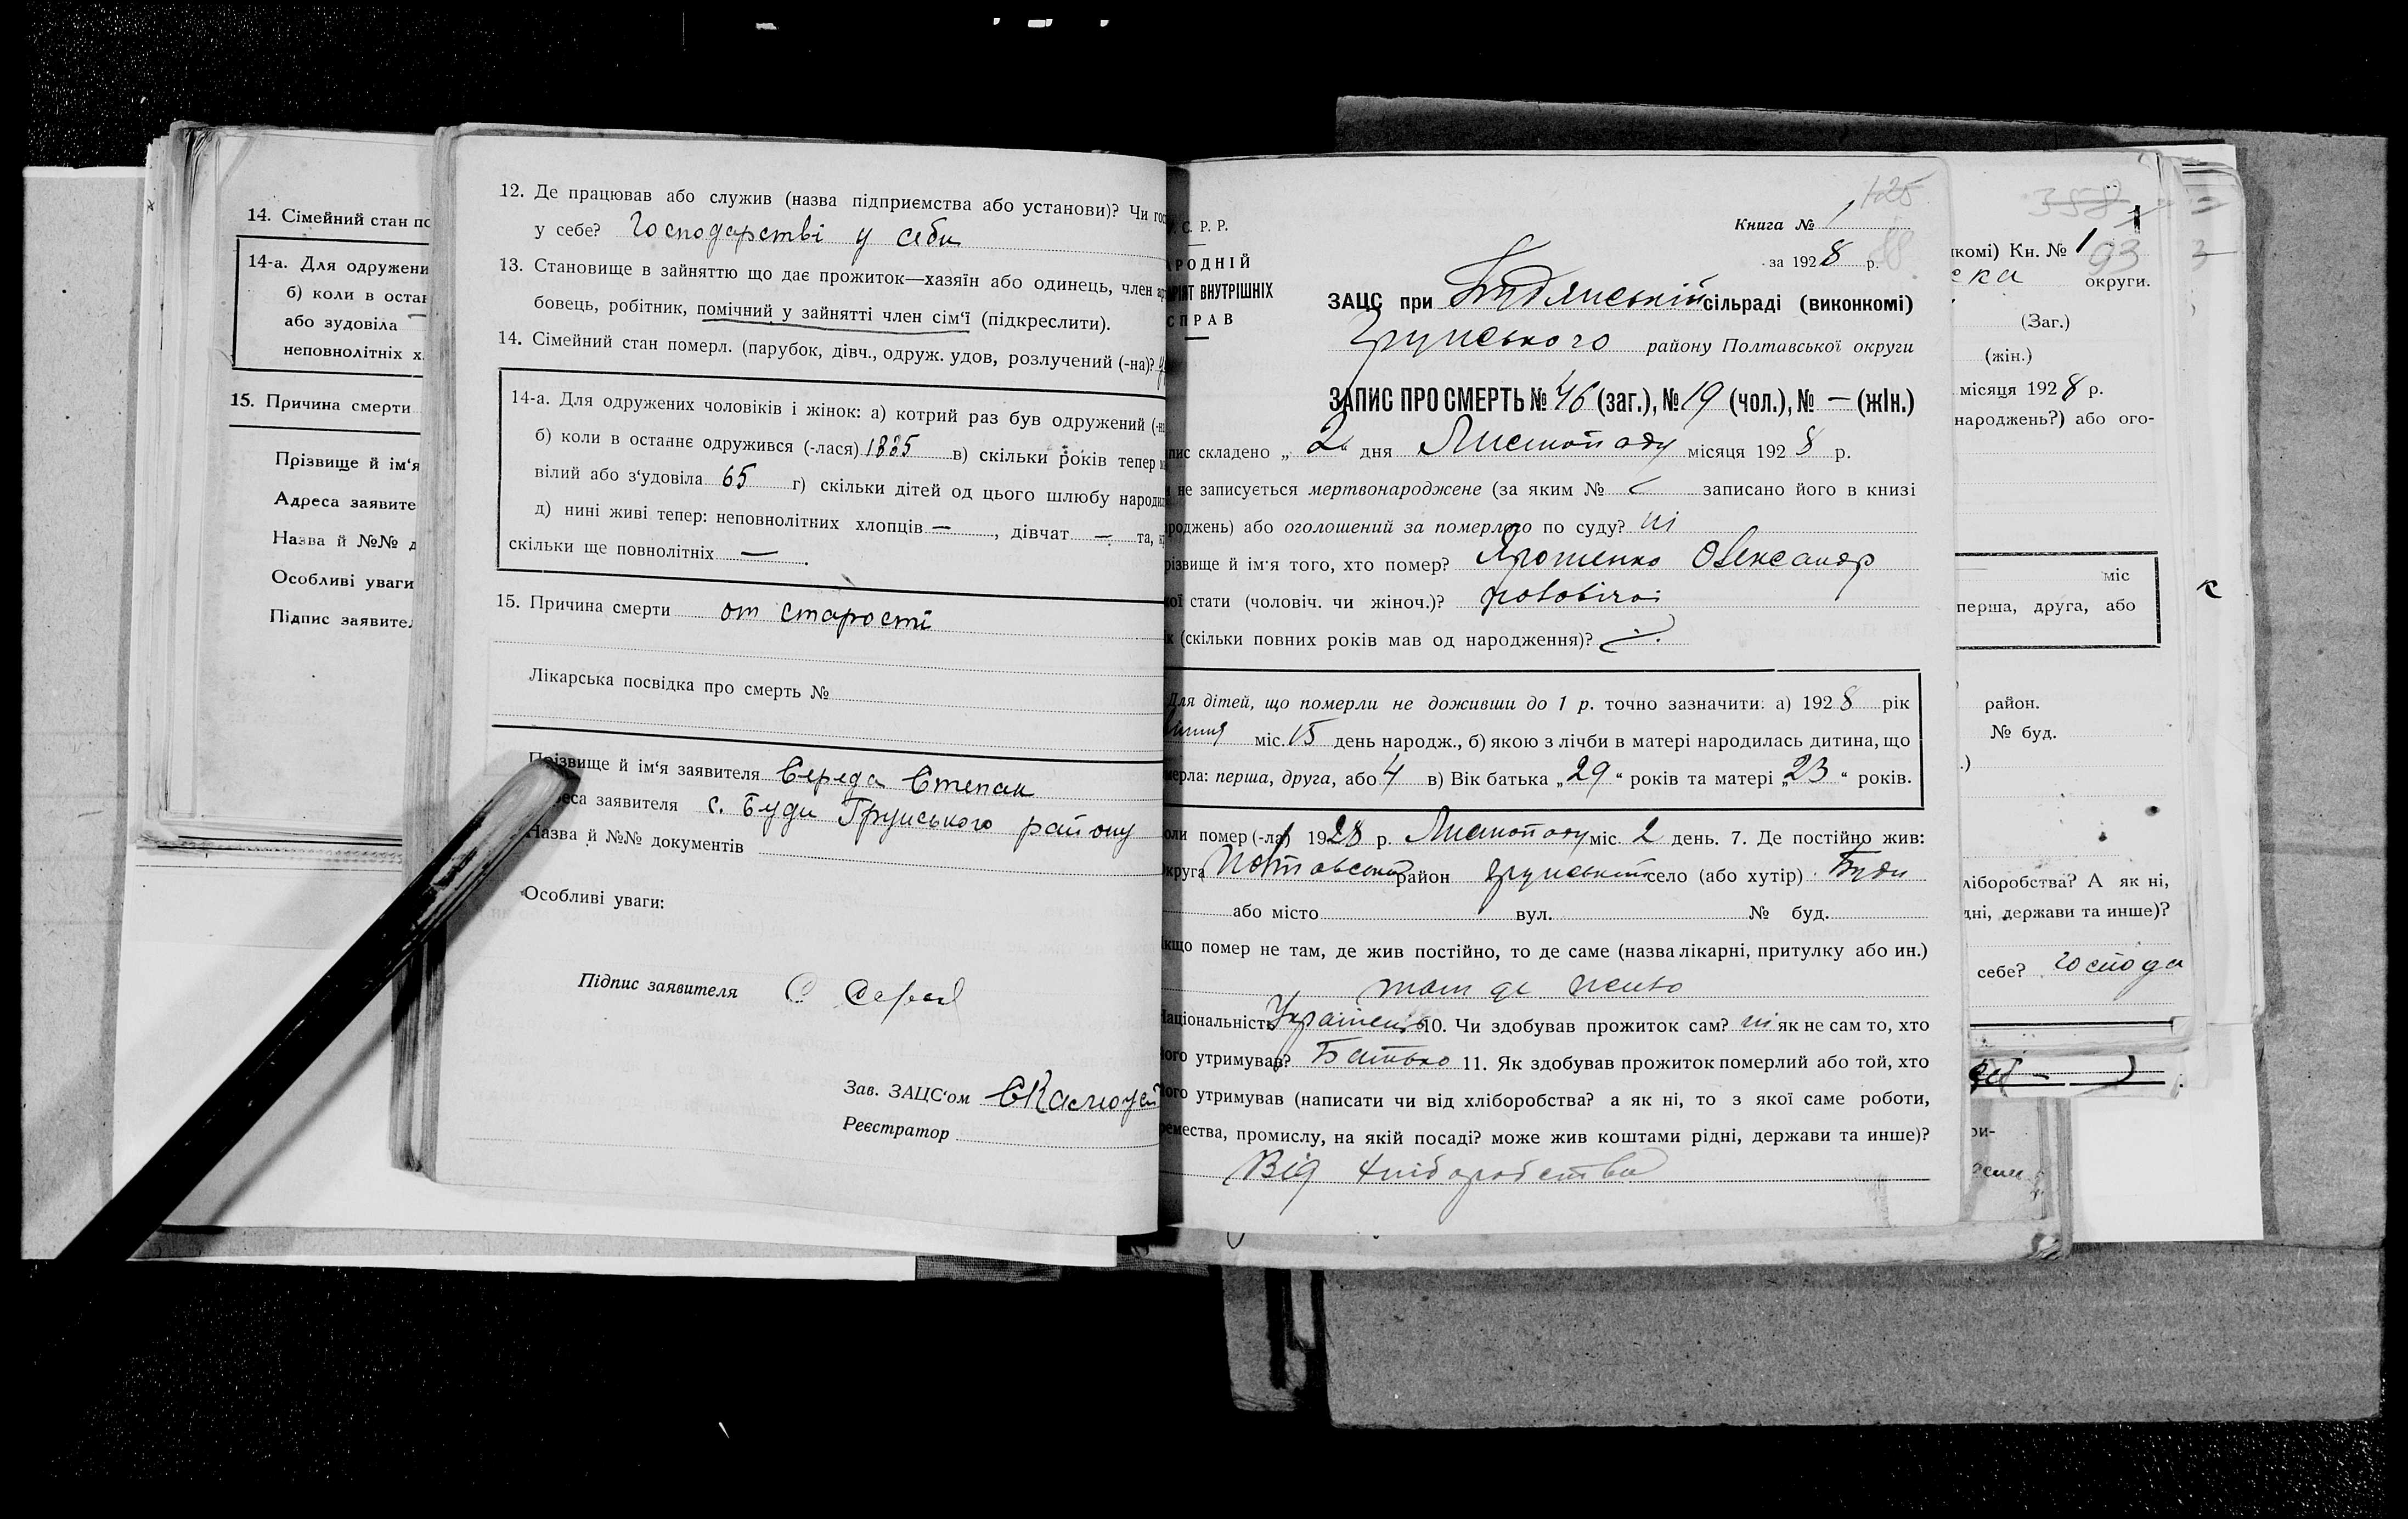 14. Сімейний стан по
14-а. Для одружени
б) коли в остан
або зудовіла —
неповнолітніх х
15. Причина смерти
Прізвище й ім'я
Адреса заявите
Назва й №№ д
Особливі уваги
Підпис заявител
12. Де працював або служив (назва підприємства або установи)? Чи гос
у себе? Господарстві у себи
13. Становище в зайняттю що дає прожиток—хазяїн або одинець, член ар
бовець, робітник, помічний у зайнятті член сім'ї (підкреслити).
14. Сімейний стан померл. (парубок, дівч., одруж. удов, розлучений (-на)?
14-а. Для одружених чоловіків і жінок: а) котрий раз був одружений (-на
б) коли в останнє одружився (-лася) 1885 в) скільки років тепер
вілий або з'удовіла 65 г) скільки дітей од цього шлюбу народил
д) нині живі тепер: неповнолітних хлопців — , дівчат — та,
скільки ще повнолітніх — .
15. Причина смерти от старості
Лікарська посвідка про смерть №
Прізвище й ім'я заявителя Середа Степан
реса заявителя с. Буди Грунського району
Назва й №№ документів
Особливі уваги:
Підпис заявителя С Серед
Зав. ЗАЦС'ом
Реєстратор
125
С. Р. Р.
Книга № 1
РОДНІЙ
за 1928 р.
РІЯТ ВНУТРІШНІХ
СПРАВ
ЗАЦС при Будянській сільраді (виконкомі)
Грунського району Полтавської округи
ЗАПИС ПРО СМЕРТЬ № 46 (заг.), № 19 (чол.), № — (жін.)
пис складено „ 2 " дня Листопаду місяця 1928 р.
не записується мертвонароджене (за яким № записано його в книзі
роджень) або оголошений за померлого по суду? ні
різвище й ім'я того, хто помер? Ярошенко Олександр
кої стати (чоловіч. чи жіноч.)? чоловічої
к (скільки повних років мав од народження)?
Для дітей, що померли не доживши до 1 р. точно зазначити: а) 1928 рік
міс. 15 день народж., б) якою з лічби в матері народилась дитина, що
мерла: перша, друга, або 4 в) Вік батька „29" років та матері „23" років.
оли помер (-ла) 1928 р. Листопаду міс. 2 день. 7. Де постійно жив:
Округа Полтавська район Грунський село (або хутір) Буди
або місто вул. № буд.
кщо помер не там, де жив постійно, то де саме (назва лікарні, притулку або ин.)
там де жило
Національність Українець 10. Чи здобував прожиток сам? ні як не сам то, хто
його утримував? Батько 11. Як здобував прожиток померлий або той, хто
його утримував (написати чи від хліборобства? а як ні, то з якої саме роботи,
ремества, промислу, на якій посаді? може жив коштами рідні, держави та инше)?
Від хліборобства
358
93
комі) Кн. № 1
ска округи.
(Заг.)
(жін.)
місяця 1928 р.
народжень?) або ого-
міс
перша, друга, або
район.
№ буд.
ліборобства? А як ні,
дні, держави та инше)?
себе? господа
ри-